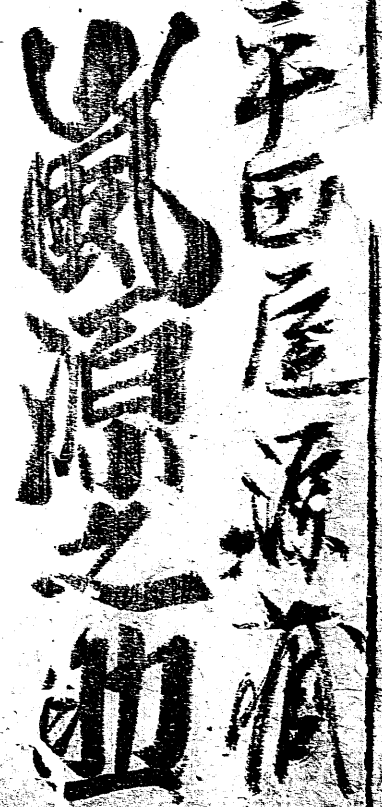 平田屋源
嵐源之助